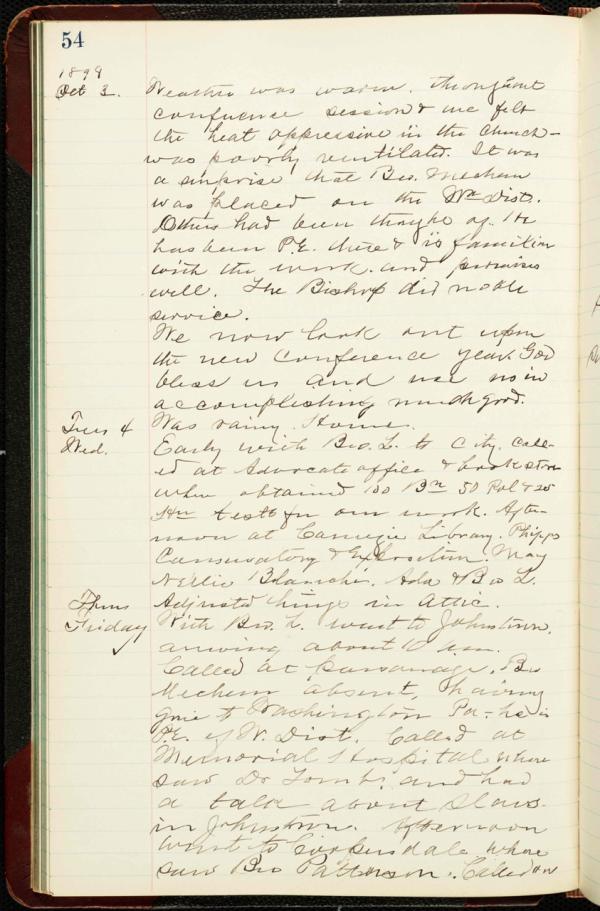 54
1899
Oct 3. Weather was warm. Throughout
conference session & we felt
the heat oppressive in the church -
was poorly ventilated. It was
a surprise that Bro. Mechem
was placed on the Wn Dist.
Others had been thought of. He
has been P.E. there & is familiar
with the work. and promises
well. The Bishop did noble
service.
We now look out upon
the new conference year. God
bless us and use us in
accomplishing much good.
Tues 4 Was rainy. Home.
Wed. Early with Bro. L. to City. Call-
ed at Advocate office & book store
where obtained 100 Bn 50 Pol & 25
Hn testts for our work. After-
noon at Carnegie Library. Phipps
Conservatory & Exposition. May
Nellie Blanche. Ada & Bro L.
Thurs Adjusted things in attic.
Friday With Bro. L. went to Johnstown,
arriving about 10 a.m.
Called at parsonage. Bro
Mechem absent, having
gone to Washington Pa - he is
P.E. of W. Dist. Called at
Memorial Hospital where
saw Dr Tombs and had
a talk about Slavs
in Johnstown. Afternoon
went to Coopersdale where
saw Bro Patterson. Called on